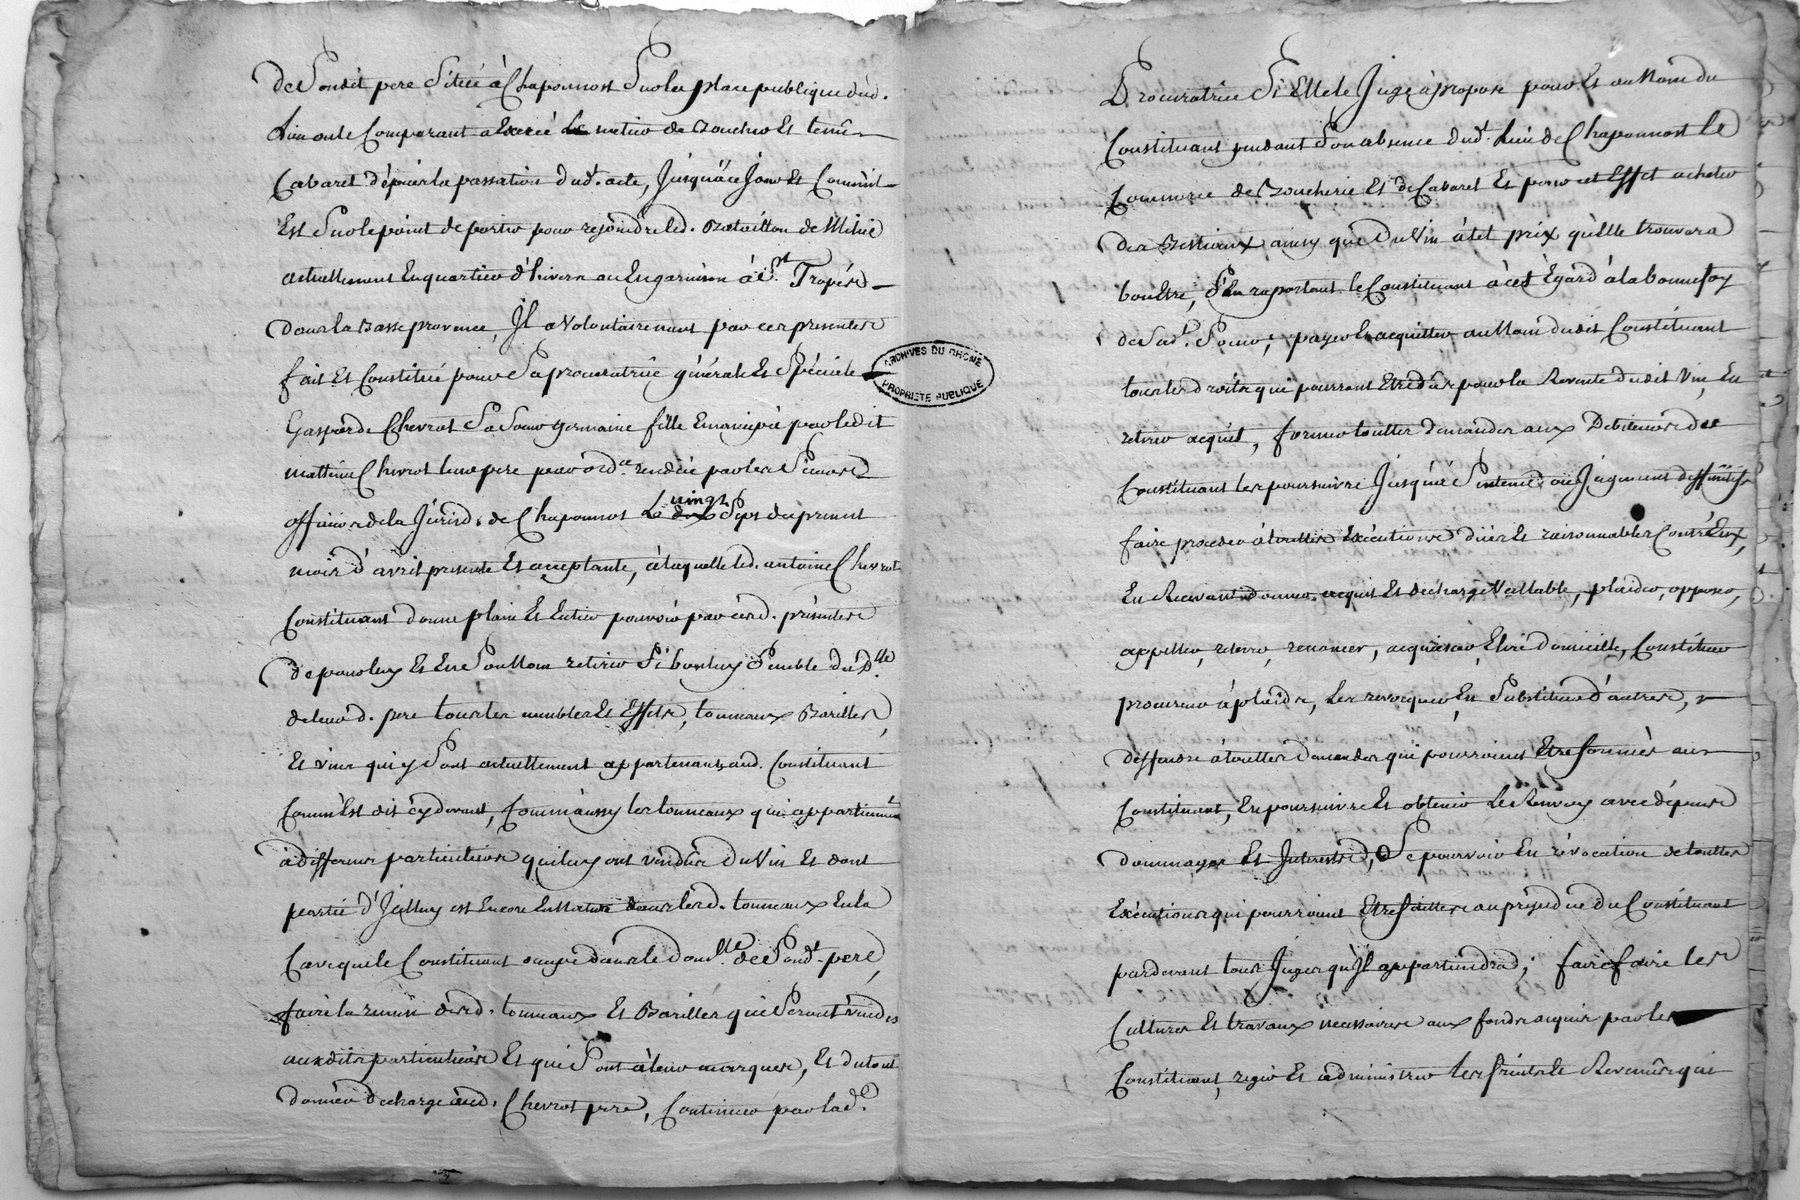 de Sondit pere Situé à Chaponnost Sur la place publique dud.
Lieu ou le Comparant a Exercé le metier de Boucher Et tenu
Cabaret dépuis la passation dud. acte, Jusqu'à ce Jour Et Comme il
Est Sur le point de partir pour rejoindre led. Bataillon de Milice
actuellement En quartier d'hivers ou En garnison à St Tropés
dans la Basse provence, Jl a Volontairement par ces presentes
fait Et Constitué pour Sa procuratrice générale Et Spéciale
Gasparde Chevrot Sa Soeur germaine fille Emancipée par ledit
matthieu Chevrot leur pere par ordce rendüe par les Sieurs
officiers de la Jurisd. de Chaponnost Le vingt Sept du present
mois d'avril presente Et acceptante, à laquelle led. antoine Chevrot
Constituant donne plain Et Entier pouvoir par cesd. presentes
de pour luy Et En Son Nom retirer Si bon luy Semble du dlle
de leurd. pere tous les meubles Et Effets, tonneaux Barilles,
Et vins qui y Sont actuellement appartenants aud. Constituant
Comm'Est dit cy devant, Comm'aussy les tonneaux qui appartiennent
à differens particuliers qui luy ont vendus du Vin Et dont
partie d'Jcelluy est Encore En Nature dans lesd. tonneaux En la
Cave que le Constituant occupe dans le domlle de Sondt. pere,
faire la remise desd. tonneaux Et Barilles qui Seront vuides
auxdits particuliers Et qui Sont à leur marques, Et du tout
donner decharge aud. Chevrot pere, Continuer par lade.
Procuratrice Si Elle le Juge à propos pour Et au Nom du
Constituant pendant Son absence dud. Lieu de Chaponnost le
Commerce de Boucherie Et de Cabaret Et pour cet Effet acheter
des Bestiaux ainsy que du Vin à tel prix qu'Elle trouvera
bon Etre, S'En raportant le Constituant à cet Egard à la bonne foy
de Sad. Soeur, payer Et acquitter au Nom dudit Constituant
tous les droits qui pourront Etre dûs pour la Revente dudit Vin, En
retirer acquit, former touttes demandes aux Debiteurs du
Constituant les poursuivre Jusqu'à Sentence ou Jugement deffinitifs
faire proceder à touttes Exécutions düës Et raisonnables Contr'Eux,
En Recevant donner acquit Et décharge Vallable, plaider, opposer,
appeller, relever, renoncer, acquiescer, Elire domicille, Constituer
procureur à plaids, les revoquer, En Substituer d'autres,
deffendre à touttes demandes qui pourroient Etre formées au
Constituant, En poursuivre Et obtenir le Renvoy avec dépens
dommages Et Interests, Se pourvoir En révocation de touttes
Exécutions qui pourroient Etre faittes au préjudice du Constituant
pardevant tous Juges qu'Jl appartiendra; faire faire les
Cultures Et travaux necessaires aux fonds acquis par le
Constituant, regir Et administrer les fruits Et Revenûs qui
ARCHIVES DU RHONE
PROPRIETE PUBLIQUE